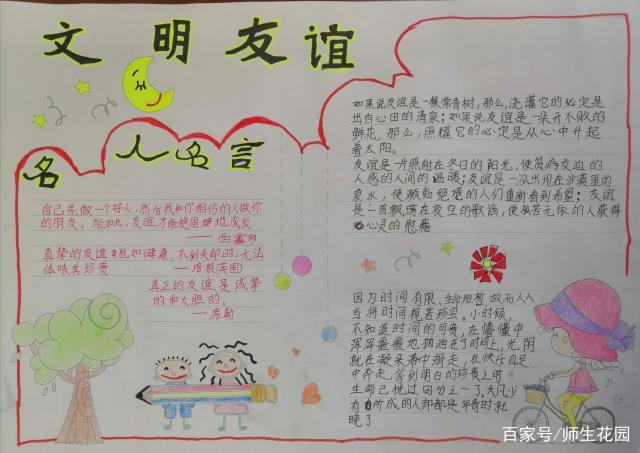 文明友谊
名人名言
自己先做一个好人，然后找和你相仿的人做你
的朋友。能如此，友谊才能稳固地成长
——西塞罗
真挚的友谊犹如健康，不到失却时，无法
体味其珍贵
——培根(英国)
真正的友谊是诚挚
的和大胆的。
——席勒
如果说友谊是一棵常青树，那么，浇灌它的必定是
出自心田的清泉；如果说友谊是一朵开不败的
鲜花，那么，照耀它的必定是从心中升起
着太阳。
友谊是一片照射在冬日的阳光，使贫病交迫的
人感的人间的温暖；友谊是一泓出现在沙漠里的
泉水，使濒临绝境的人们重新看到希望；友谊
是一首飘荡在夜空的歌谣，使孤苦无依的人获得
心灵的慰藉
因为时间有限，生命短暂，故而人人
当将时间视若珍宝。小时候，
不知道时间的可贵，在懵懂中
浑浑噩噩地抛洒在了时间上，光阴
就在凝呆滞中溜走，在快乐自足
中奔走，等到明白的珍贵之时
生命已优过四分之一了，大凡少
有所成的人却都是年奇时起
晚了
百家号/师生花园